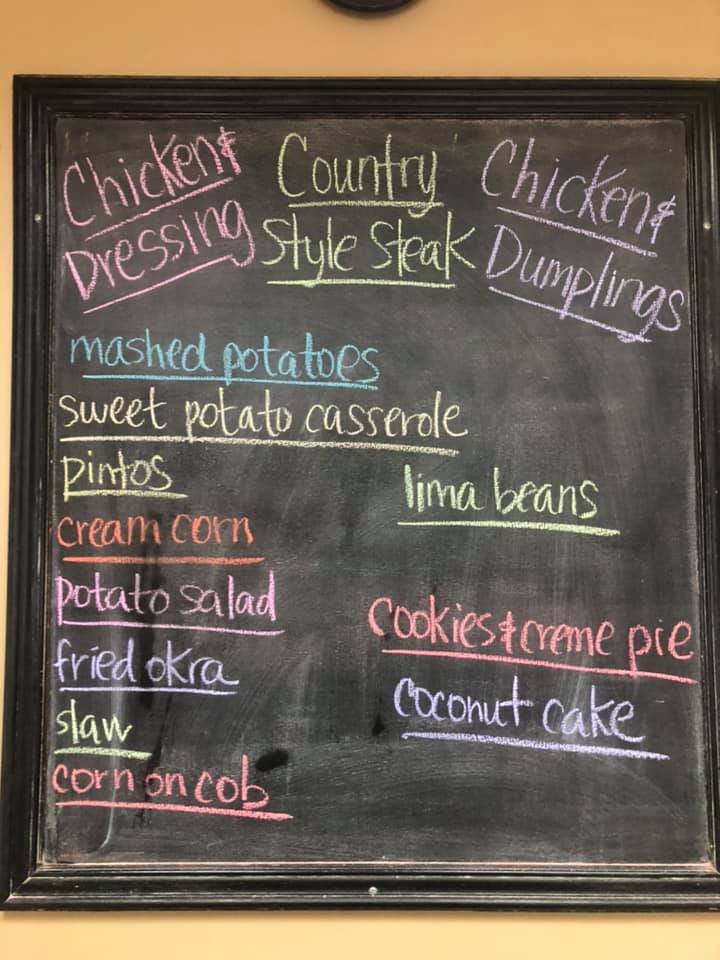 Chicken &
Dressing
Country
Style Steak
Chicken &
Dumplings
mashed potatoes
sweet potato casserole
pintos
lima beans
cream corn
potato salad
cookies & creme pie
fried okra
coconut cake
slaw
corn on cob